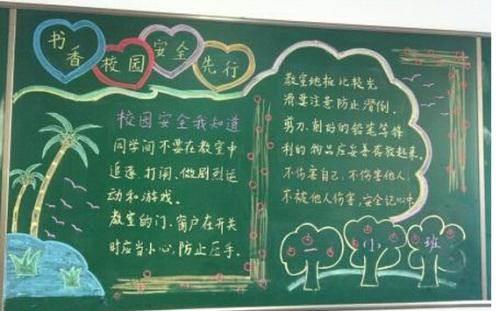 书香
校园
安全
先行
校园安全我知道
同学间不要在教室中
追逐、打闹、做剧烈运
动和游戏。
教室的门、窗户在开关
时应当小心,防止压手。
教室地板比较光
滑要注意防止滑倒。
剪刀、削好的铅笔等锋
利的物品应妥善存放起来。
不伤害自己,不伤害他人,
不被他人伤害,安全记心中
一小班